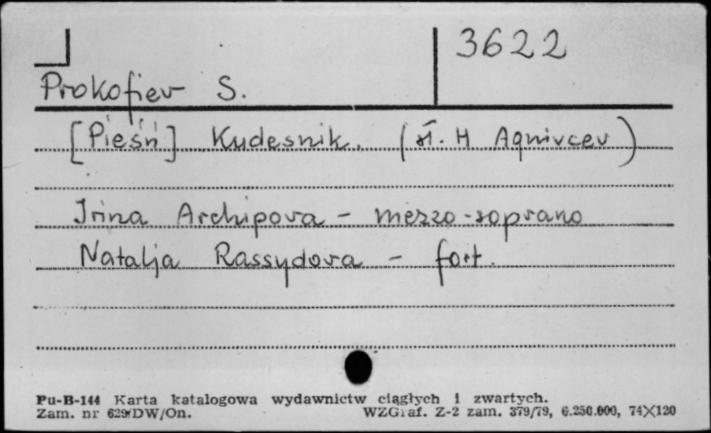 3622
Prokofiev S.
[Pieśń] Kudesnik. (sł. H Agnivcev)
Irina Archipova - mezzo-soprano
Natalja Rassydova - fort.
Pu-B-144 Karta katalogowa wydawnictw ciągłych i zwartych.
Zam. nr 629/DW/On. WZGraf. Z-2 zam. 379/79, 6.250.000, 74X120